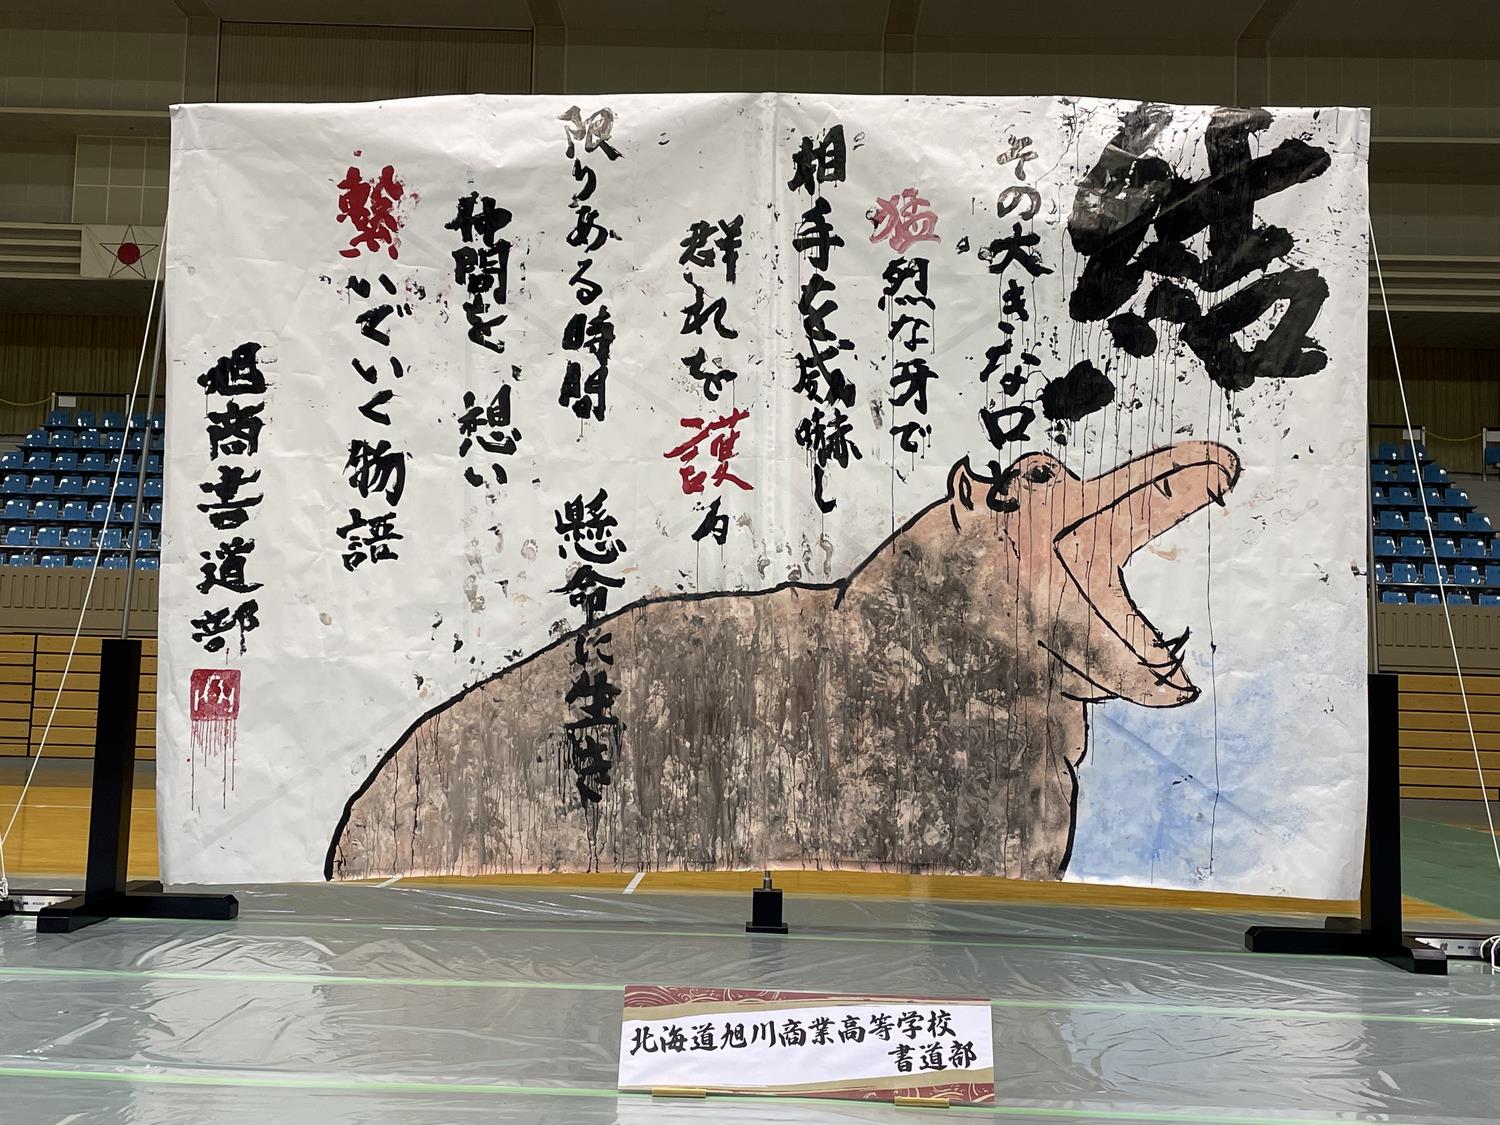 結
その大きな口と
猛烈な牙で
相手を威嚇し
群れを護る
限りある時間
懸命に生き
仲間を想い
繋いでいく物語
旭商書道部
北海道旭川商業高等学校
書道部